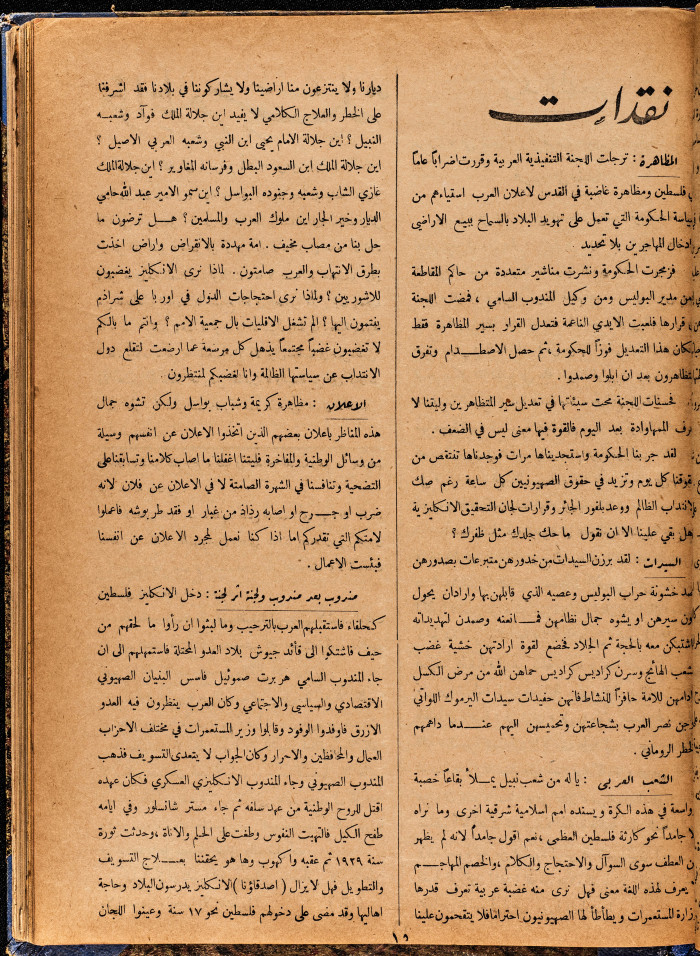 نقدات
المظاهرة : ترجلت اللجنة التنفيذية العربية وقررت اضرابًا عامًا
في فلسطين ومظاهرة غاضبة في القدس لاعلان العرب استياءهم من
سياسة الحكومة التي تعمل على تهويد البلاد بالسماح ببيع الاراضي
وادخال المهاجرين بلا تحديد
فزمجرت الحكومة ونشرت مناشير متعددة من حاكم المقاطعة
من مدير البوليس ومن وكيل المندوب السامي ، فمضت اللجنة
قرارها فلعبت الايدي الناعمة فتعدل القرار بسير المظاهرة فقط
فكان هذا التعديل فوزًا للحكومة ، ثم حصل الاصطدام وتفرق
المتظاهرون بعد ان ابلوا وصمدوا .
فحسنات اللجنة محت سيئتها في تعديل سير المتظاهرين وليقنا لا
نعرف المهاودة بعد اليوم فالقوة فيها معنى ليس في الضعف .
لقد جربنا الحكومة واستجديناها مرات فوجدناها تنتقص من
حقوقنا كل يوم وتزيد في حقوق الصهيونيين كل ساعة رغم صك
الانتداب الظالم ووعد بلفور الجائر وقرارات لجان التحقيق الانكليزية
هل بقي علينا الا ان نقول ما حك جلدك مثل ظفرك ؟
السيدات : لقد برزن السيدات من خدورهن متبرعات بصدورهن
ضد خشونة حراب البوليس وعصيه الذي قابلهن بها وارادان يحول
دون سيرهن او يشوه جمال نظامهن فمانعنه وصمدن لتهديداته
واشتبكن معه بالحجة ثم الجلاد فخضع لقوة ارادتهن خشية غضب
الشعب الهائج وسرن كراديس كراديس حماهن الله من مرض الكسل
وادامهن للامة حافزًا للنشاط فانهن حفيدات سيدات اليرموك اللواتي
نصر العرب بشجاعتهن وتحميسهن اليهم عندما داهمهم
الخطر الروماني .
الشعب العربى : يا له من شعب نبيل يملأ بقاعًا خصبة
واسعة في هذه الكرة ويسنده امم اسلامية شرقية اخرى وما نراه
الا جامدًا نحو كارثة فلسطين العظمى ، نعم اقول جامدًا لانه لم يظهر
من العطف سوى السوآل والاحتجاج والكلام ، والخصم المهاجم
لا يعرف لهذه اللغة معنى فهل نرى منه غضبة عربية تعرف قدرها
وزارة المستعمرات ويطأطأ لها الصهيونيون احترامًا فلا يتقحمون علينا
ديارنا ولا ينتزعون منا اراضينا ولا يشاركوننا في بلادنا فقد اشرفنا
على الخطر والعلاج الكلامي لا يفيد اين جلالة الملك فوآد وشعبه
النبيل ؟ اين جلالة الامام يحيى ابن النبي وشعبه العربي الاصيل ؟
اين جلالة الملك ابن السعود البطل وفرسانه المغاوير ؟ اين جلالة الملك
غازي الشاب وشعبه وجنوده البواسل ؟ اين سمو الامير عبد الله حامي
الديار وخير الجار اين ملوك العرب والمسلمين ؟ هل ترضون ما
حل بنا من مصاب مخيف . امة مهددة بالانقراض واراض اخذت
بطرق الانتهاب والعرب صامتون . لماذا نرى الانكليز يغضبون
للاشوريين ؟ ولماذا نرى احتجاجات الدول في اوربا على شراذم
يغتمون اليها ؟ الم تشغل الاقليات بال جمعية الامم ؟ وانتم ما بالكم
لا تغضبون غضبًا مجتمعًا يذهل كل مرضعة عما ارضعت لتقلع دول
الانتداب عن سياستها الظالمة وانا لغضبكم لمنتظرون .
الاعلان : مظاهرة كريمة وشباب بواسل ولكن تشوه جمال
هذه المناظر باعلان بعضهم الذين اتخذوا الاعلان عن انفسهم وسيلة
من وسائل الوطنية والمفاخرة فليتنا اغفلنا ما اصاب كلامنا وتسابقنا على
التضحية وتنافسنا في الشهرة الصامتة لا في الاعلان عن فلان لانه
ضرب او جرح او اصابه رذاذ من غبار او فقد طربوشه فاعملوا
لامتكم التي تقدركم اما اذا كنا نعمل لمجرد الاعلان عن انفسنا
فبئست الاعمال .
مندوب بعد مندوب ولجنة اثر لجنة : دخل الانكليز فلسطين
كحلفاء فاستقبلهم العرب بالترحيب وما لبثوا ان رأوا ما لحقهم من
حيف فاشتكوا الى قأئد جيوش بلاد العدو المحتلة فاستمهلهم الى ان
جاء المندوب السامي هربرت صموئيل فاسس البنيان الصهيوني
الاقتصادي والسياسي والاجتماعي وكان العرب ينظرون فيه العدو
الازرق فاوفدوا الوفود وقابلوا وزير المستعمرات في مختلف الاحزاب
العمال والمحافظين والاحرار وكان الجواب لا يتعدى التسويف فذهب
المندوب الصهيوني وجاء المندوب الانكليزي العسكري فكان عهده
اقتل للروح الوطنية من عهد سلفه ثم جاء مستر شانسلور وفي ايامه
طفح الكيل فالتهبت النفوس وطفت على الحلم والاناة ، وحدثت ثورة
سنة ١٩٢٩ ثم عقبه واكهوب وها هو يحقننا بعلاج التسويف
والتطويل فهل لا يزال ( اصدقاؤنا ) الانكليز يدرسون البلاد وحاجة
اهاليها وقد مضى على دخولهم فلسطين نحو ١٧ سنة وعينوا اللجان
١٥